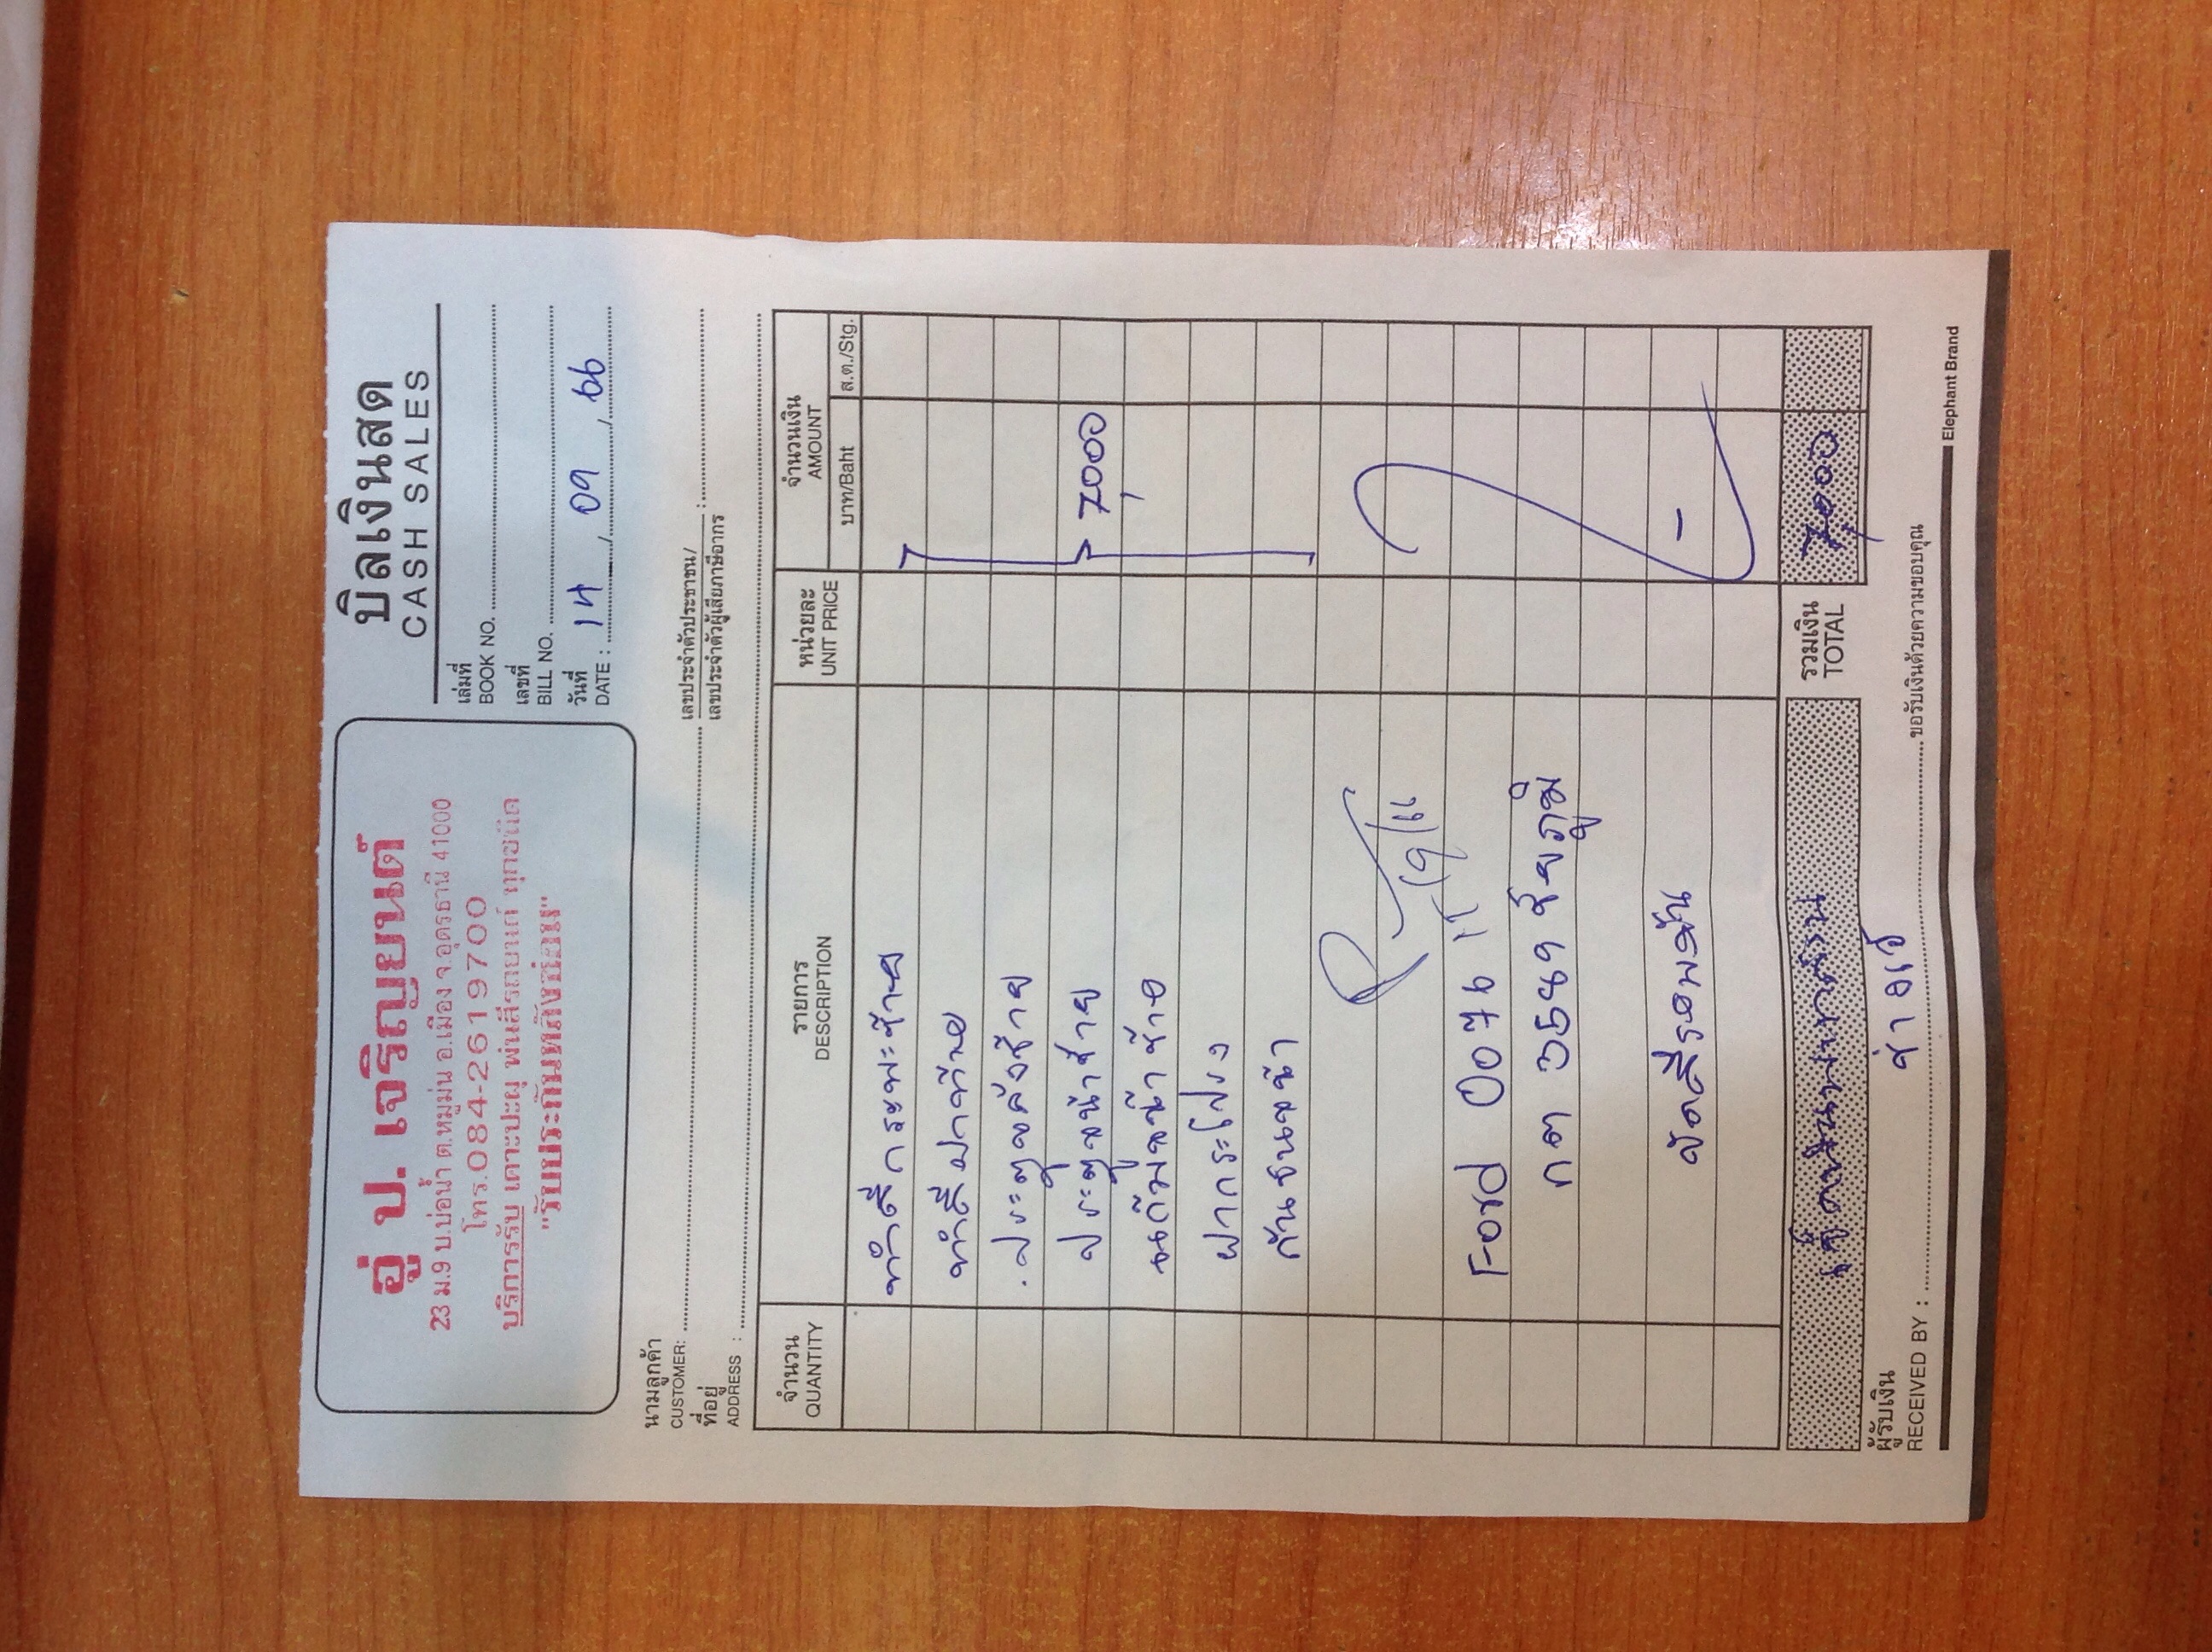 อู่ ป. เจริญยนต์
23 ม.9 บ.บ่อน้ำ ต.หมูม่น อ.เมือง จ.อุดรธานี 41000
โทร.084-2619700
บริการรับ เคาะปะผุ พ่นสีรถยนต์ ทุกชนิด
"รับประกันหลังซ่อม"
บิลเงินสด
CASH SALES
เล่มที่
BOOK NO.
เลขที่
BILL NO.
วันที่
DATE : 14 / 09 / 66
นามลูกค้า
CUSTOMER:
เลขประจำตัวประชาชน/
เลขประจำตัวผู้เสียภาษีอากร :
ที่อยู่
ADDRESS :
จำนวน QUANTITY
รายการ DESCRIPTION
หน่วยละ UNIT PRICE
จำนวนเงิน AMOUNT
บาท/Baht ส.ต./Stg.
ทำสี กระพะซ้าย
ทำสี ฝาท้าย
ประตูหลังซ้าย
ประตูหน้าซ้าย 7,000
แก้มหน้าซ้าย
ฝากระโปรง
กันชนหน้า
Ford 0076
กต 3589 ชัยภูมิ
ขัดสีรอบคัน
รวมเงิน TOTAL 7,000
ผู้รับเงิน
RECEIVED BY : ขอรับเงินด้วยความขอบคุณ
Elephant Brand